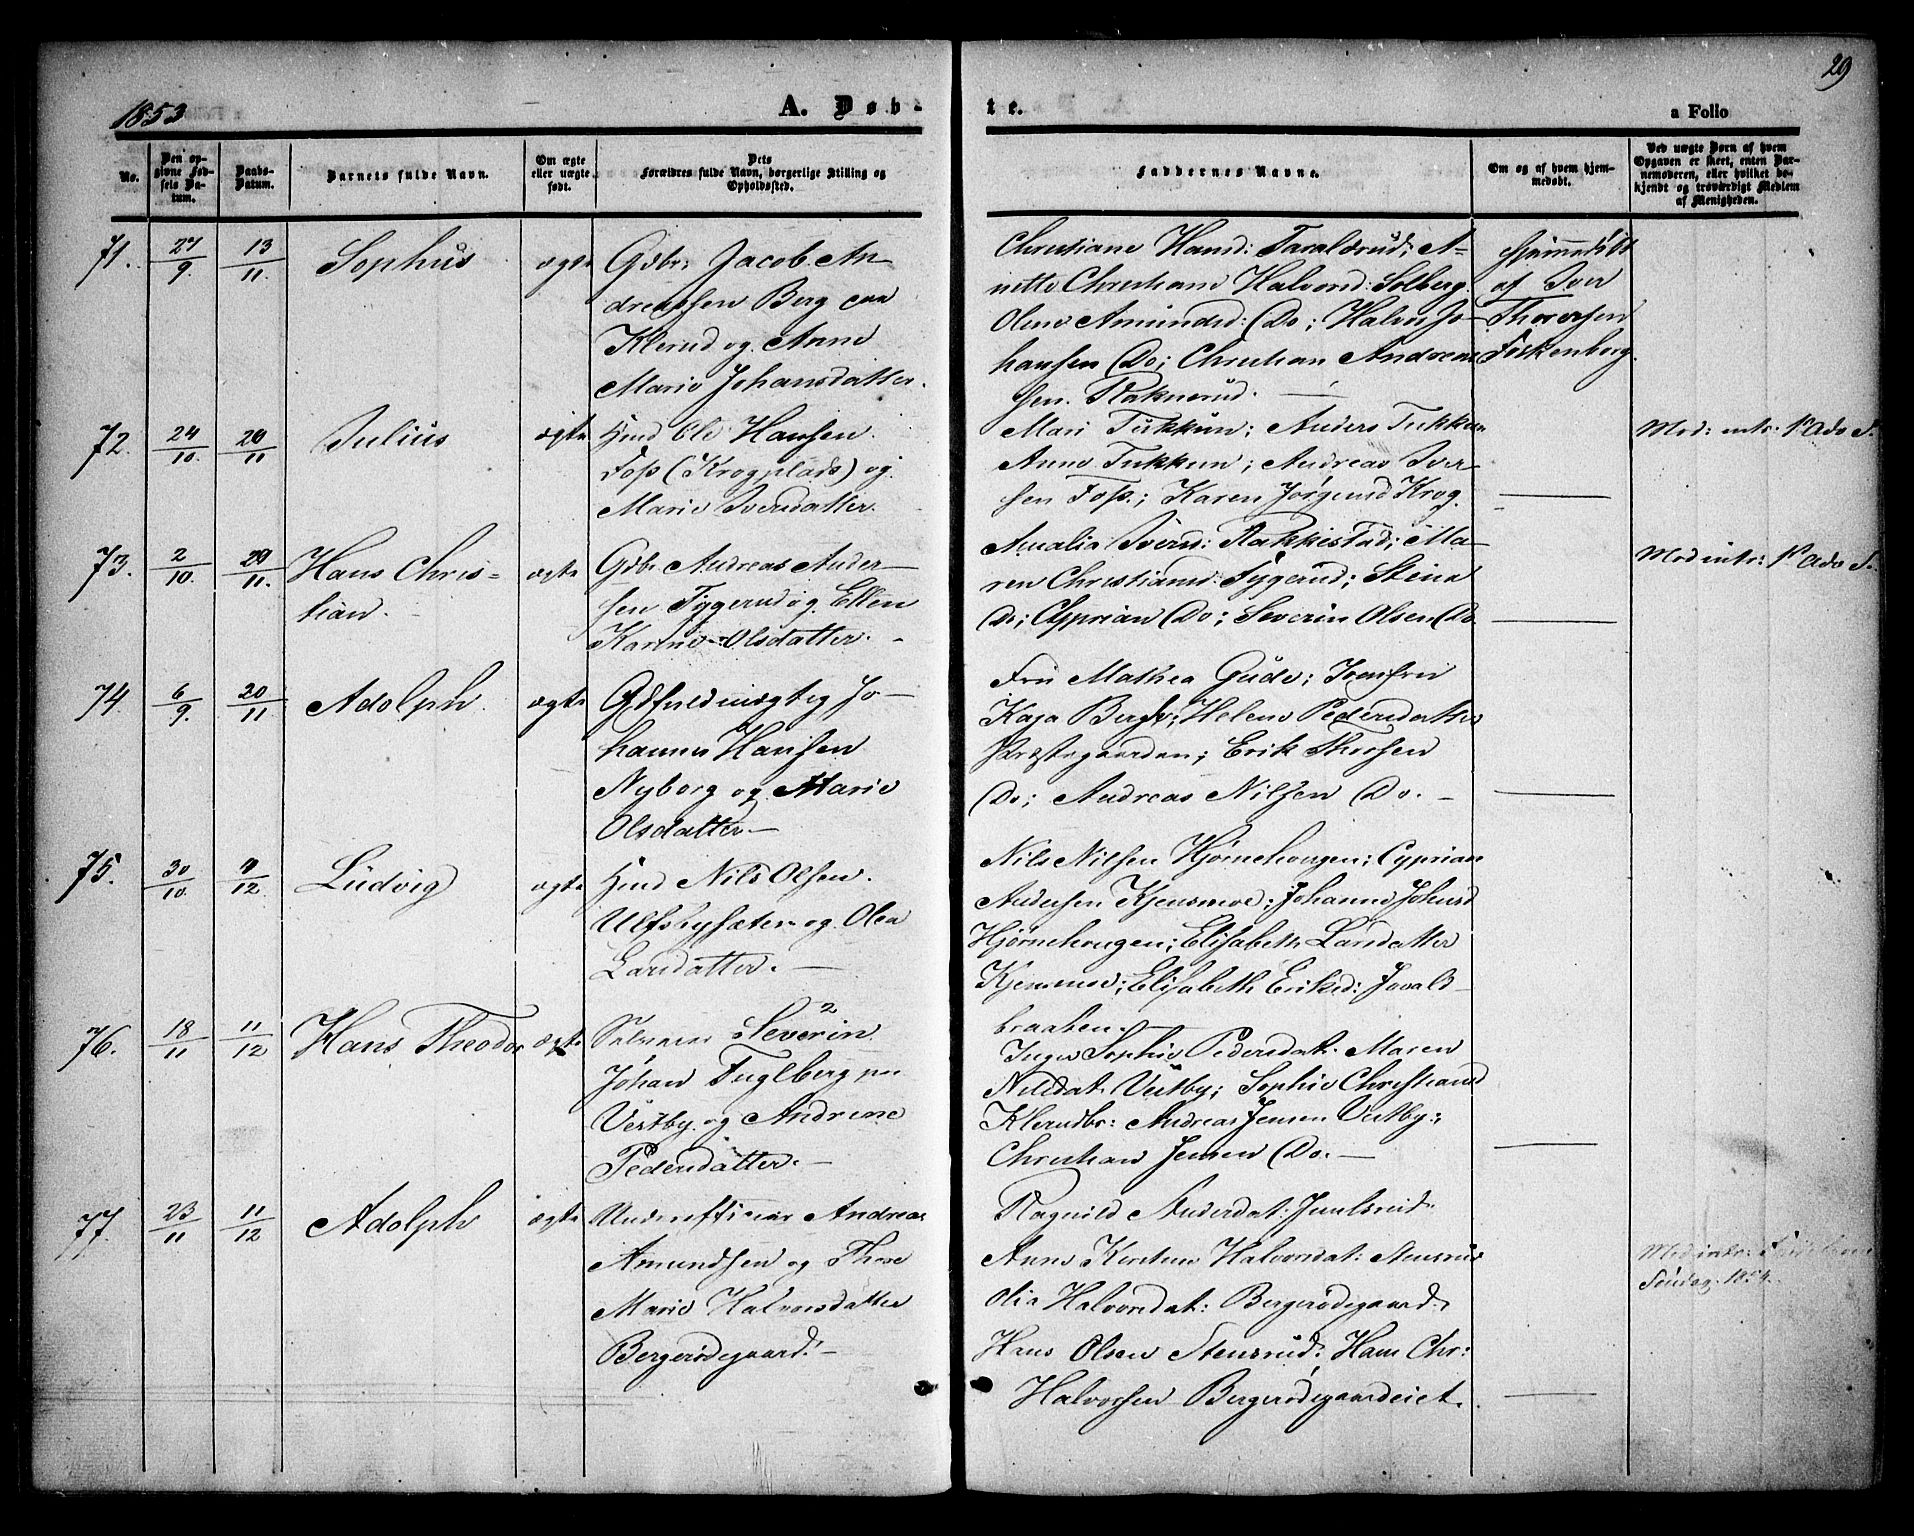 29
1853
A. Døb-
te.
a Folio
No.
Den op-
givne Fød-
sels Da-
tum.
Daabs-
Datum.
Barnets fulde Navn.
Om ægte
eller uægte
født.
Dets
Forældres fulde Navn, borgerlige Stilling og
Opholdssted.
Faddernes Navne.
Om og af hvem hjem-
medøbt.
Ved uægte Børn af hvem
Opgaven er skeet, enten Bar-
nemoderen, eller hvilket be-
kjendt og troværdigt Medlem
af Menigheden.
71. 27/9 13/11. Sophus ægte Gdbr: Jacob An-
dreassen Berg
Klerud og Anne
Marie Johansdatter.
Christiane Hansd: Taralderud; A-
nette Christiane Halvorsd: Solberg.
Olene Amundsd: Do; Halvor Jo-
hansen Do; Christian Andreas-
sen Raknerud.
Hjemmedøbt
af Iver
Thoresen
Falkenborg.
72. 24/10. 20/11 Julius ægte Hmd Ole Hansen
Foss (Krogplads) og
Marie Iversdatter.
Mari Tukkun; Anders Tukkun
Anne Tukkun; Andreas Iver-
sen Foss.; Karen Jørgensd Krog.
Mod: intr. 1ste Adv S.
73. 2/10. 20/11. Hans Chris-
tian. ægte Gdbr Andreas Ander-
sen Tygerud og Ellen
Karine Olsdatter.
Amalia Iversd: Rakkestad; Ma-
ren Christiansd: Tygerud; Stina
Do; Cyprian Do; Severin Olsen Do
Mod intr: 1ste Adv S.
74. 6/9. 20/11 Adolph. ægte Gdfuldmægtig Jo-
hannes Hansen
Nyborg og Marie
Olsdatter
Fru Mathea Gude; Jomfru
Kaja Bergh; Helene Pedersdatter
Præstegaarden; Erik Thorsen
Do; Andreas Nilsen Do.
75. 30/10. 4/12 Ludvig ægte Hmd Nils Olsen
Ulfsbysæter og Olea
Larsdatter.
Nils Nilsen Hjørnehougen; Cyprian
Andersen Kjensmoe; Johanne Johnsd
Hjørnehougen; Elisabeth Larsdatter
Kjensmoe; Elisabeth Eriksd:
braaten.
76. 18/11 11/12 Hans Theodor ægte Severin
Johan Fuglberg
Vestby og Andrine
Pedersdatter.
Inger Sophie Pedersdat. Maren
Nilsdat. Vestby; Sophie Christiansd
Klerudbr: Andreas Jensen Vestby;
Christian Jensen Do.
77. 23/11 11/12 Adolph ægte Underofficier Andreas
Amundsen og Thore
Marie Halvorsdatter
Bergerødegaard.
Ragnild Andersdat: Juulsrud
Anne Kirstine Halvorsdat: Stensrud
Olia Halvorsdat: Bergerødegaard.
Hans Olsen Stensrud; Hans Chr:
Halvorsen Bergerødegaardeiet.
Mod intr:
Søndag 1854.